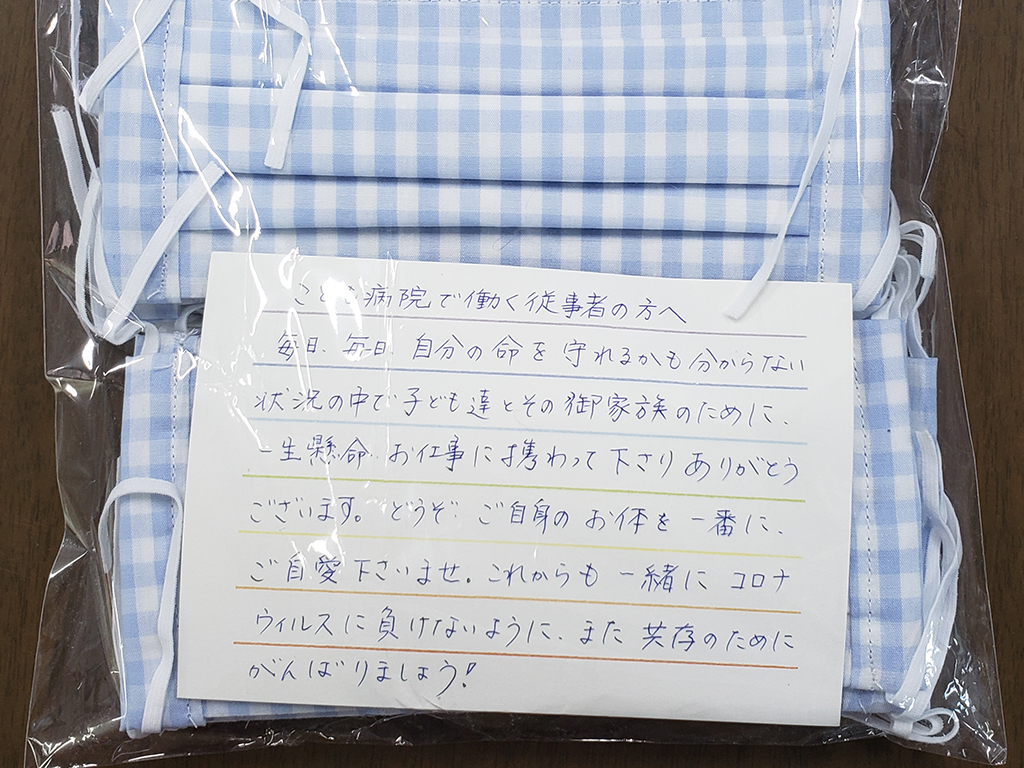 こども病院で働く従事者の方へ
毎日、毎日、自分の命を守れるかも分からない
状況の中で子ども達とその御家族のために、
一生懸命、お仕事に携わって下さりありがとう
ございます。どうぞ、ご自身のお体を一番に、
ご自愛下さいませ。これからも一緒にコロナ
ウィルスに負けないように、また共存のために
がんばりましょう!